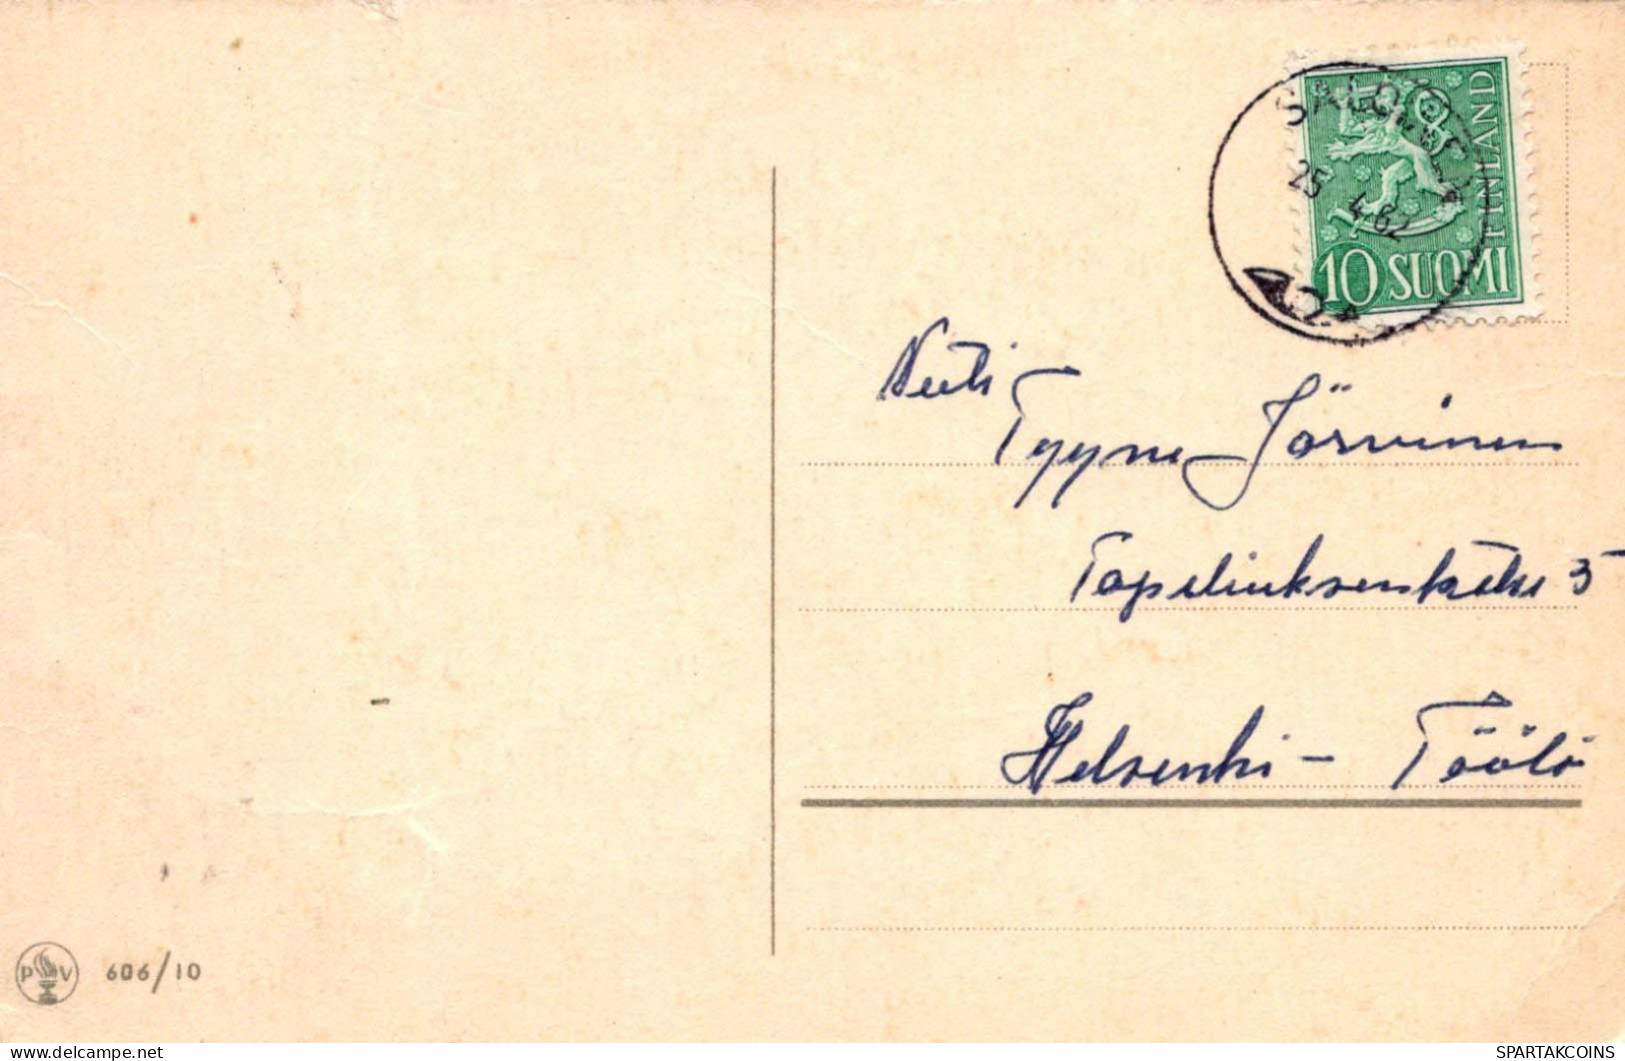 FINLAND
25 4.62
10 SUOMI
Neiti
Tyyne Järvinen
Topeliuksenkatu 5
Helsinki - Töölö
P V 606/10
www.delcampe.net
SPARTAKCOINS